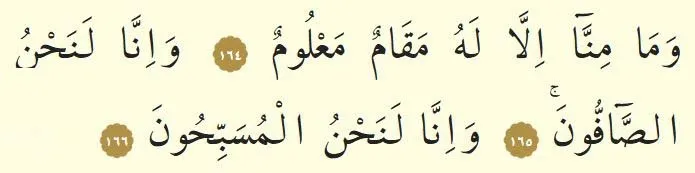 وَمَا مِنَّٓا اِلَّا لَهُ مَقَامٌ مَعْلُومٌ ﴿١٦٤﴾ وَاِنَّا لَنَحْنُ
الصَّٓافُّونَۚ ﴿١٦٥﴾ وَاِنَّا لَنَحْنُ الْمُسَبِّحُونَ ﴿١٦٦﴾